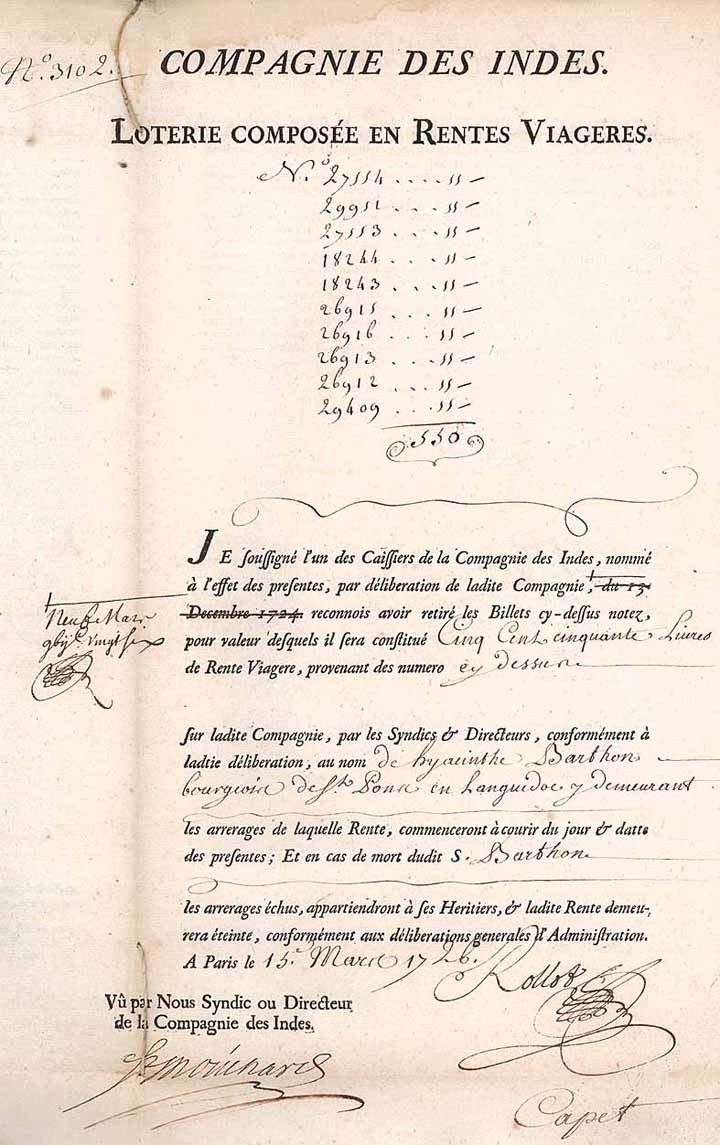 N.º 3102.
COMPAGNIE DES INDES.
LOTERIE COMPOSÉE EN RENTES VIAGERES.
N.º 27554 .... 55 —
29951 ... 55 —
27553 ... 55 —
18244 ... 55 —
18243 ... 55 —
26915 ... 55 —
26916 ... 55 —
26913 ... 55 —
26912 ... 55 —
29409 ... 55 —
550
JE soussigné l'un des Caissiers de la Compagnie des Indes, nommé
à l'effet des presentes, par déliberation de ladite Compagnie, du 15
Decembre 1724 reconnois avoir retiré les Billets cy-dessus notez,
pour valeur desquels il sera constitué Cinq Cent cinquante Livres
de Rente Viagere, provenant des numero cy dessus
Neuf Mars
vingt six
sur ladite Compagnie, par les Syndics & Directeurs, conformément à
ladtie déliberation, au nom de hyacinthe Barthon
bourgeois de St. Pons en Languedoc y demeurant
les arrerages de laquelle Rente, commenceront à courir du jour & datte
des presentes; Et en cas de mort dudit S. Barthon
les arrerages échus, appartiendront à ses Heritiers, & ladite Rente demeu-
rera éteinte, conformément aux déliberations generales d'Administration.
A Paris le 15e Mars 1726.
Vû par Nous Syndic ou Directeur
de la Compagnie des Indes.
Capet